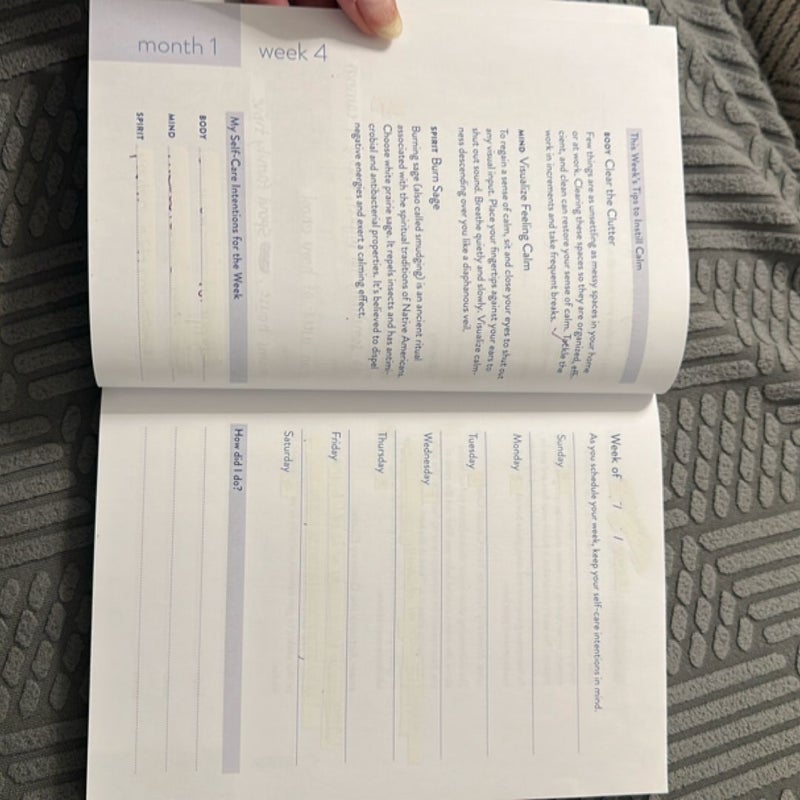 month 1
week 4
This Week's Tips to Instill Calm
BODY Clear the Clutter
Few things are as unsettling as messy spaces in your home
or at work. Clearing these spaces so they are organized, effi-
cient, and clean can restore your sense of calm. Tackle the
work in increments and take frequent breaks.
MIND Visualize Feeling Calm
To regain a sense of calm, sit and close your eyes to shut out
any visual input. Place your fingertips against your ears to
shut out sound. Breathe quietly and slowly. Visualize calm-
ness descending over you like a diaphanous veil.
SPIRIT Burn Sage
Burning sage (also called smudging) is an ancient ritual
associated with the spiritual traditions of Native Americans.
Choose white prairie sage. It repels insects and has antimi-
crobial and antibacterial properties. It's believed to dispel
negative energies and exert a calming effect.
My Self-Care Intentions for the Week
BODY
MIND
SPIRIT
Week of
As you schedule your week, keep your self-care intentions in mind.
Sunday
Monday
Tuesday
Wednesday
Thursday
Friday
Saturday
How did I do?